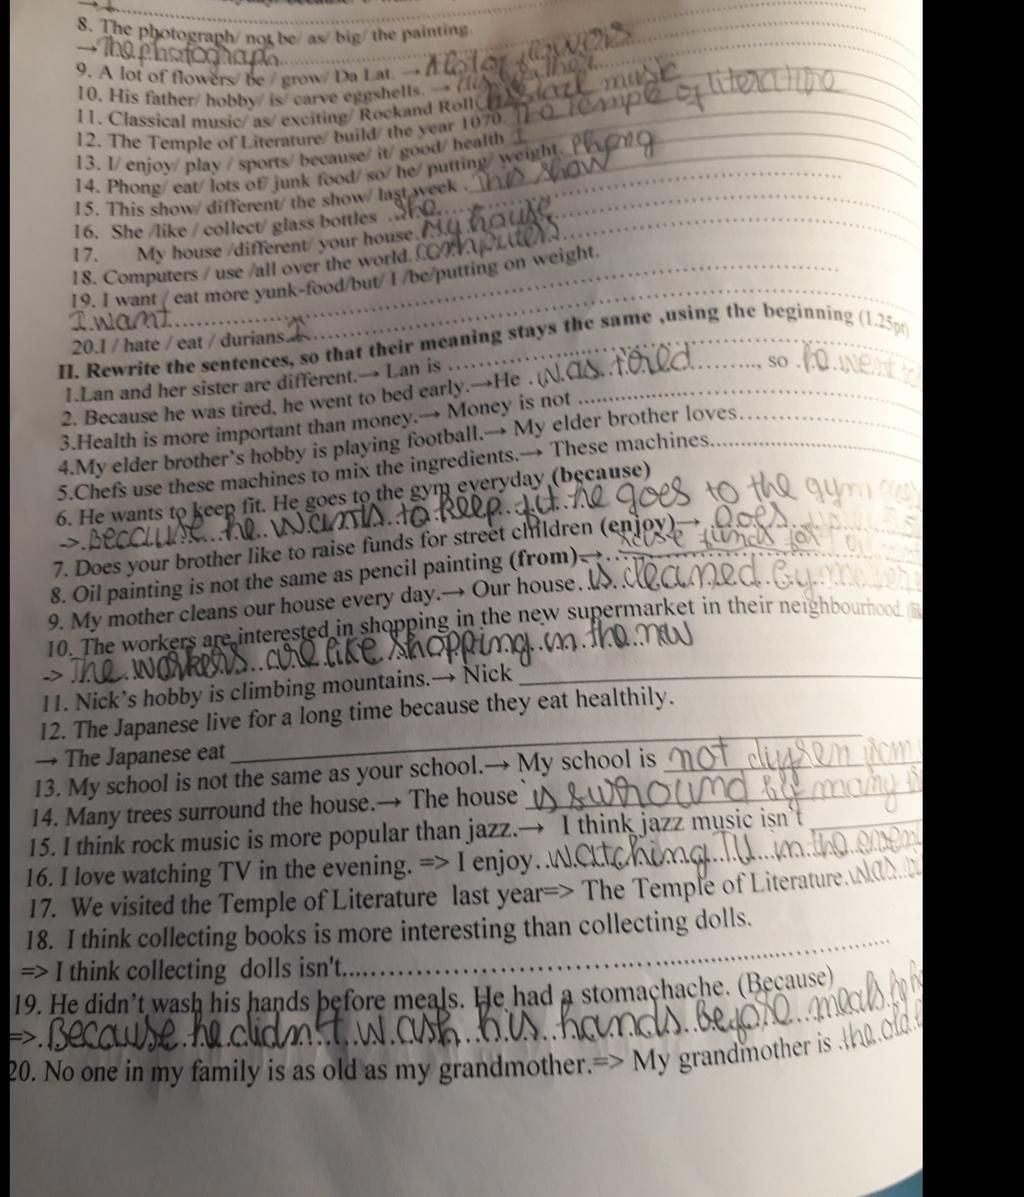 8. The photograph/ not be/ as/ big/ the painting.
→The photograph
9. A lot of flowers/ be / grow/ Da Lat. → A lot of flowers
10. His father/ hobby/ is/ carve eggshells. →
11. Classical music/ as/ exciting/ Rockand Roll
12. The Temple of Literature/ build/ the year 1070. Temple of literature
13. I/ enjoy/ play / sports/ because/ it/ good/ health I
14. Phong/ eat/ lots of/ junk food/ so/ he/ putting/ weight. Phong
15. This show/ different/ the show/ last week . This show
16. She /like / collect/ glass bottles .She
17. My house /different/ your house. My house
18. Computers / use /all over the world. computers
19. I want / eat more yunk-food/but/ I /be/putting on weight.
I want
20.I / hate / eat / durians I
II. Rewrite the sentences, so that their meaning stays the same ,using the beginning (1.25pt)
1.Lan and her sister are different.→ Lan is
2. Because he was tired, he went to bed early.→He .was tored........, so .he went
3.Health is more important than money.→ Money is not
4.My elder brother's hobby is playing football.→ My elder brother loves
5.Chefs use these machines to mix the ingredients.→ These machines
6. He wants to keep fit. He goes to the gym everyday (because)
->.Because he wants to keep fit he goes to the gym
7. Does your brother like to raise funds for street children (enjoy)→ Does
8. Oil painting is not the same as pencil painting (from)→ raise funds for
9. My mother cleans our house every day.→ Our house. is cleaned by
10. The workers are interested in shopping in the new supermarket in their neighbourhood.
-> The workers are like shopping in the new
11. Nick's hobby is climbing mountains.→ Nick
12. The Japanese live for a long time because they eat healthily.
→ The Japanese eat
13. My school is not the same as your school.→ My school is not
14. Many trees surround the house.→ The house is by many
15. I think rock music is more popular than jazz.→ I think jazz music isn't
16. I love watching TV in the evening. => I enjoy watching TV in the
17. We visited the Temple of Literature last year=> The Temple of Literature. was
18. I think collecting books is more interesting than collecting dolls.
=> I think collecting dolls isn't
19. He didn't wash his hands before meals. He had a stomachache. (Because)
=>.Because he didn't wash his hands before meals he
20. No one in my family is as old as my grandmother.=> My grandmother is .the old